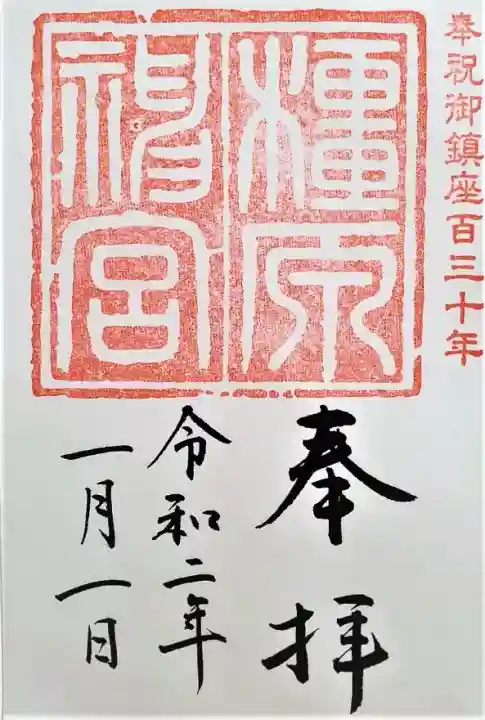 奉祝御鎮座百三十年
橿原
神宮
奉拝
令和二年
一月一日